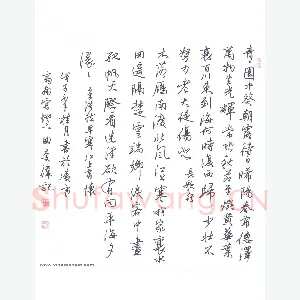 青園中葵朝露待日晞陽春布德澤
萬物生光輝常恐秋節至焜黃華葉
衰百川東到海何時復西歸少壯不
努力老大徒傷悲 長歌行
木落雁南度北風江上寒我家襄水
曲遥隔楚雲端鄉淚客中盡
孤帆天際看迷津欲有問平海夕
漫〻 孟浩然早寒江上有懷
桂月書於
Shufawang.CN